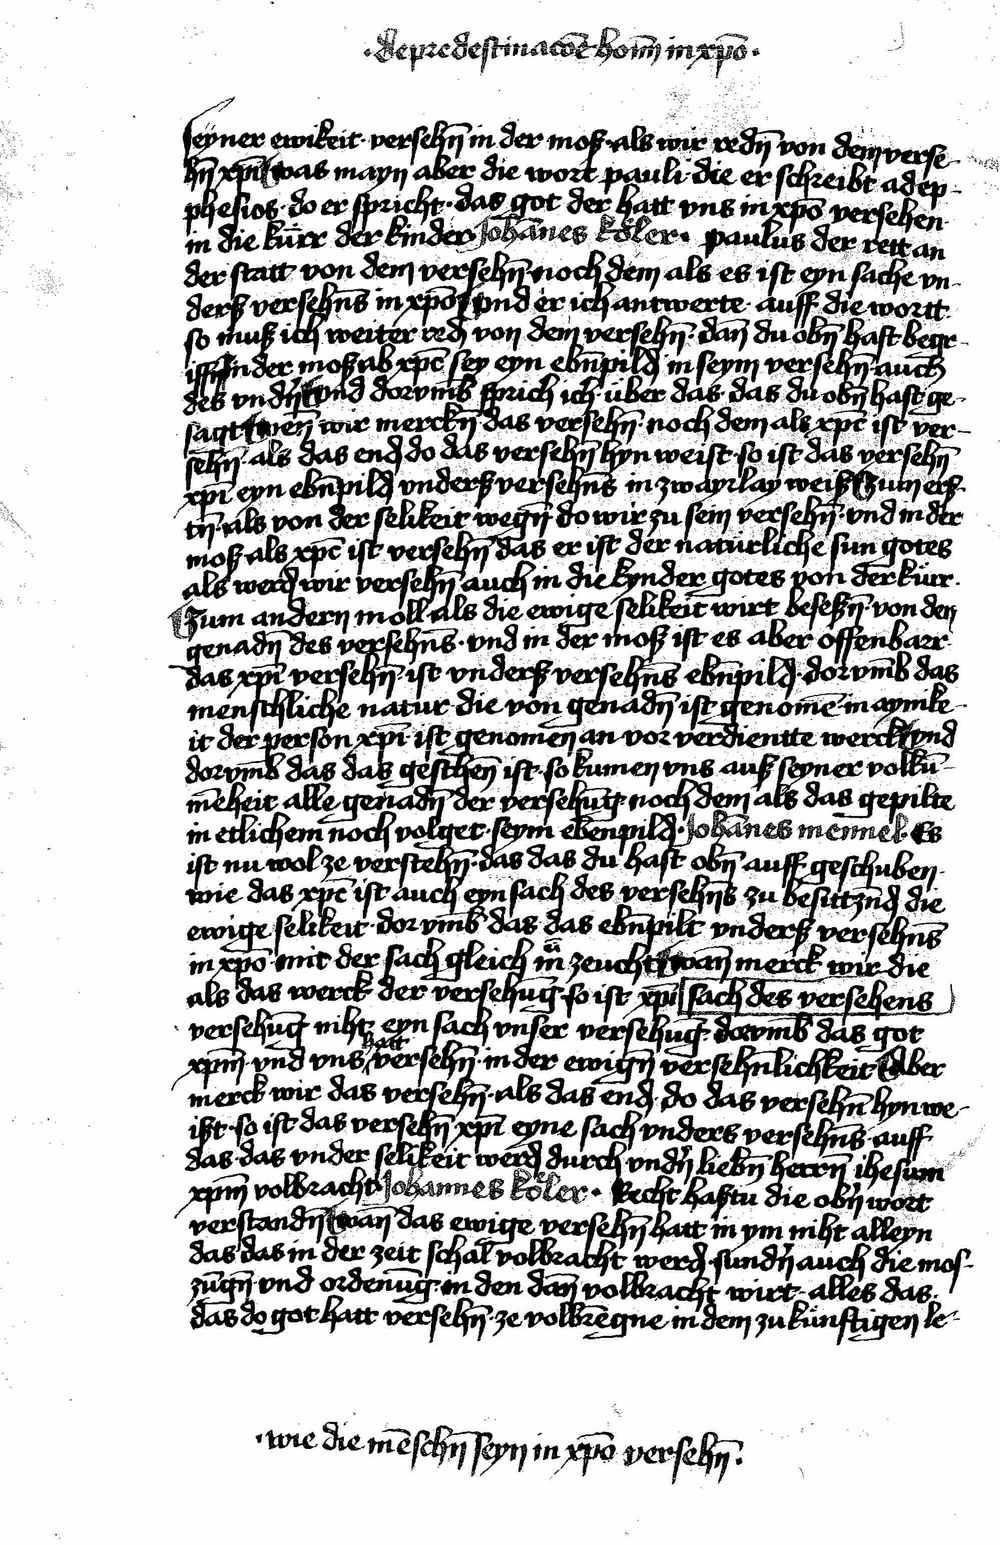 ·de predestinacōe hoīm in xp̄o·
seyner ewikeit· versehn̄ in der moß· als wir redn̄ von dem verse-
hn̄ xp̄i was mayn aber die wort pauli· die er schreibt ad ep-
phesios· do er spricht· das got der hatt vns in xp̄o versehen
in die kürr der kinder Johānes köler· paulus der rett an
der statt von dem versehn̄· noch dem als es ist eyn sache vn-
derß versehn̄s in xp̄o vnd er ich antwerte· auff die wortt
so muß ich weiter red̄ von dem versehn̄· dan̄ du obn̄ hast begr-
iffn̄ in der moß ab xp̄c sey eyn ebn̄pild̄ in seym versehn̄ auch
des vndn̄ vnd dorvm̄b sprich ich· über das· das du obn̄ hast ge-
sagt wen̄ wir merckn̄ das versehn̄· noch dem als xp̄c ist ver-
sehn̄· als das end̄ do das versehn̄ hyn weist· so ist das versehn̄
xp̄i eyn ebn̄pild̄ vnderß versehn̄s in zwayrlay weiß Zum erß-
tn̄· als von der selikeit wegn̄ do wir zu sein versehn̄· vnd in der
moß als xp̄c ist versehn̄ das er ist der naturliche sun gotes
als werd̄ wir versehn̄ auch in die kynder gotes von der kürr·
Zum andern moll als die ewige selikeit wirt beseßn̄ von den
genadn̄ des versehn̄s· vnd in der moß ist es aber offenbarr
das xp̄i versehn̄· ist vnderß versehn̄s ebn̄pild̄· dorvm̄b das
menschliche natur· die von genadn̄ ist genomē· in aynike-
it der person xp̄i ist genomen̄ an vor verdientte werck vnd
dorvm̄b das das geschen̄ ist· so kumen vns auß seyner volkū-
mēheit alle genadn̄ der versehūg· noch dem als das gepilte
in etlichem noch volget· seym ebenpild̄· Johānes mennel· Es
ist nu wol ze verstehn̄· das das du hast obn̄ auff geschuben·
wie das xp̄c ist auch eyn sach des versehn̄s zu besittzn̄d die
ewige selikeit· dorvm̄b das das ebn̄pilt vnderß versehn̄s
in xp̄o mit der sach gleich in̄ zeucht wan̄ merck wir die
als das werck der versehūg· so ist xp̄i sach des versehens
versehūg niht eyn sach vnser versehūg· dorvm̄b das got
xp̄m̄ vnd vns hatt versehn̄· in der ewign̄ versehn̄lichkeit Aber
merck wir das versehn̄· als das end̄ do das versehn̄ hyn we-
ist· so ist das versehn̄ xp̄i eyne sach vnders versehn̄s· auff
das· das vnder selikeit werd̄ durch vndn̄ liebn̄ herrn̄ ihesum
xp̄m̄ volbracht Johannes köler· Recht hastu die obn̄ wort
verstandn̄ wan̄ das ewige versehn̄ hatt in ym niht alleyn
das das in der zeit schal volbracht werd̄ sundn̄ auch die mos-
zūgn̄ vnd ordenūg· in den dan̄ volbracht wirt· alles das·
das do got hatt versehn̄· ze volbrēgne in dem zukünftigen le-
·wie die mēschn̄ seyn in xp̄o versehn̄·